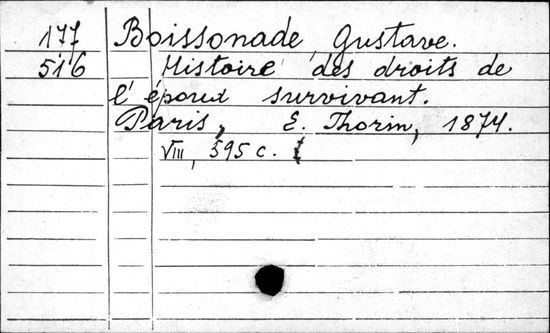 177 Boissonade, Gustave.
516 Histoire des droits de
l'époux survivant.
Paris, E. Thorin, 1874.
VIII, 595 c.